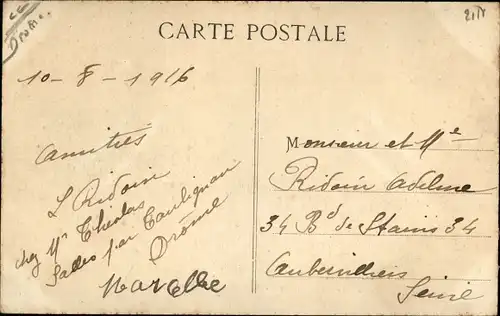 Drôme
CARTE POSTALE
10-8-1916
Amitiés
L Ridoin
chez Mr
Salles par Taulignan
Drôme
Marcelle
Monsieur et Me
Ridoin Adelme
34 Bd de Stains 34
Aubervilliers
Seine